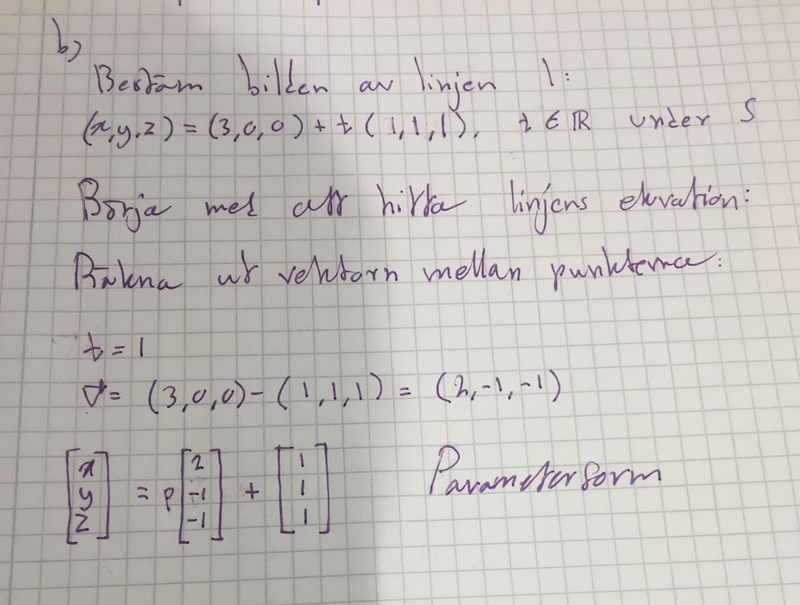 b)
Bestäm bilden av linjen l:
(x,y,z) = (3,0,0) + t (1,1,1), t ∈ ℝ under S
Börja med att hitta linjens ekvation:
Räkna ut vektorn mellan punkterna:
t = 1
v = (3,0,0) - (1,1,1) = (2,-1,-1)
[x y z] = p [2 -1 -1] + [1 1 1] Parameterform